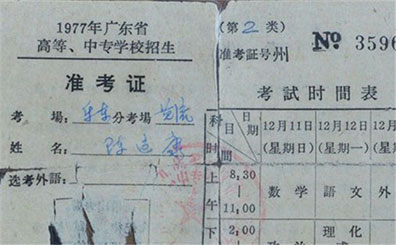 1977年广东省
高等、中专学校招生
准考证
考 場: 乐东分考場
姓 名:
选考外語:
(第2类)
准考証号州 № 3596
考試时間表
科目 日期 时間
12月11日 12月12日 12月
(星期日) (星期一) (星
上午 8,30 — 11,00 数学 語文 外
下 2,00 政治 理化